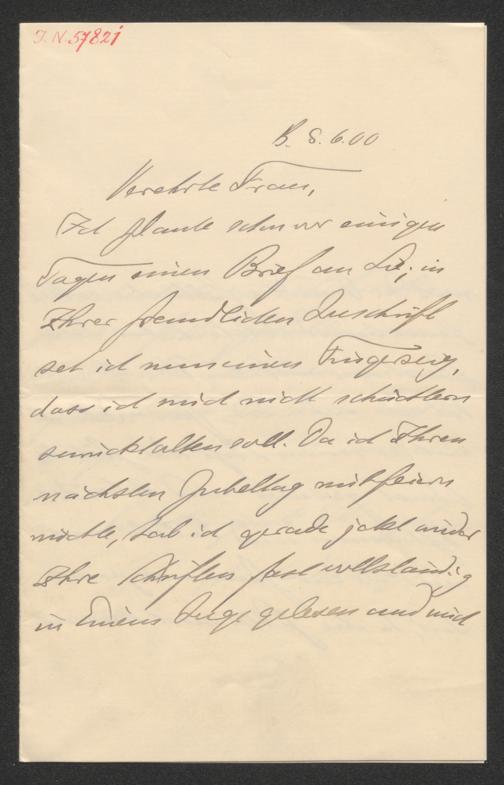 I.N. 57821
B. 8. 6. 00
Verehrte Frau,
Ich plante schon vor einigen
Tagen einen Brief an Sie; in
Ihrer freundlichen Zuschrift
seh ich nun einen Fingerzeig,
dass ich mich nicht schüchtern
zurückhalten soll. Da ich Ihren
nächsten Jubeltag mitfeiern
möchte, hab ich gerade jetzt wieder
Ihre Schriften fast vollständig
in Einem Zuge gelesen und mich